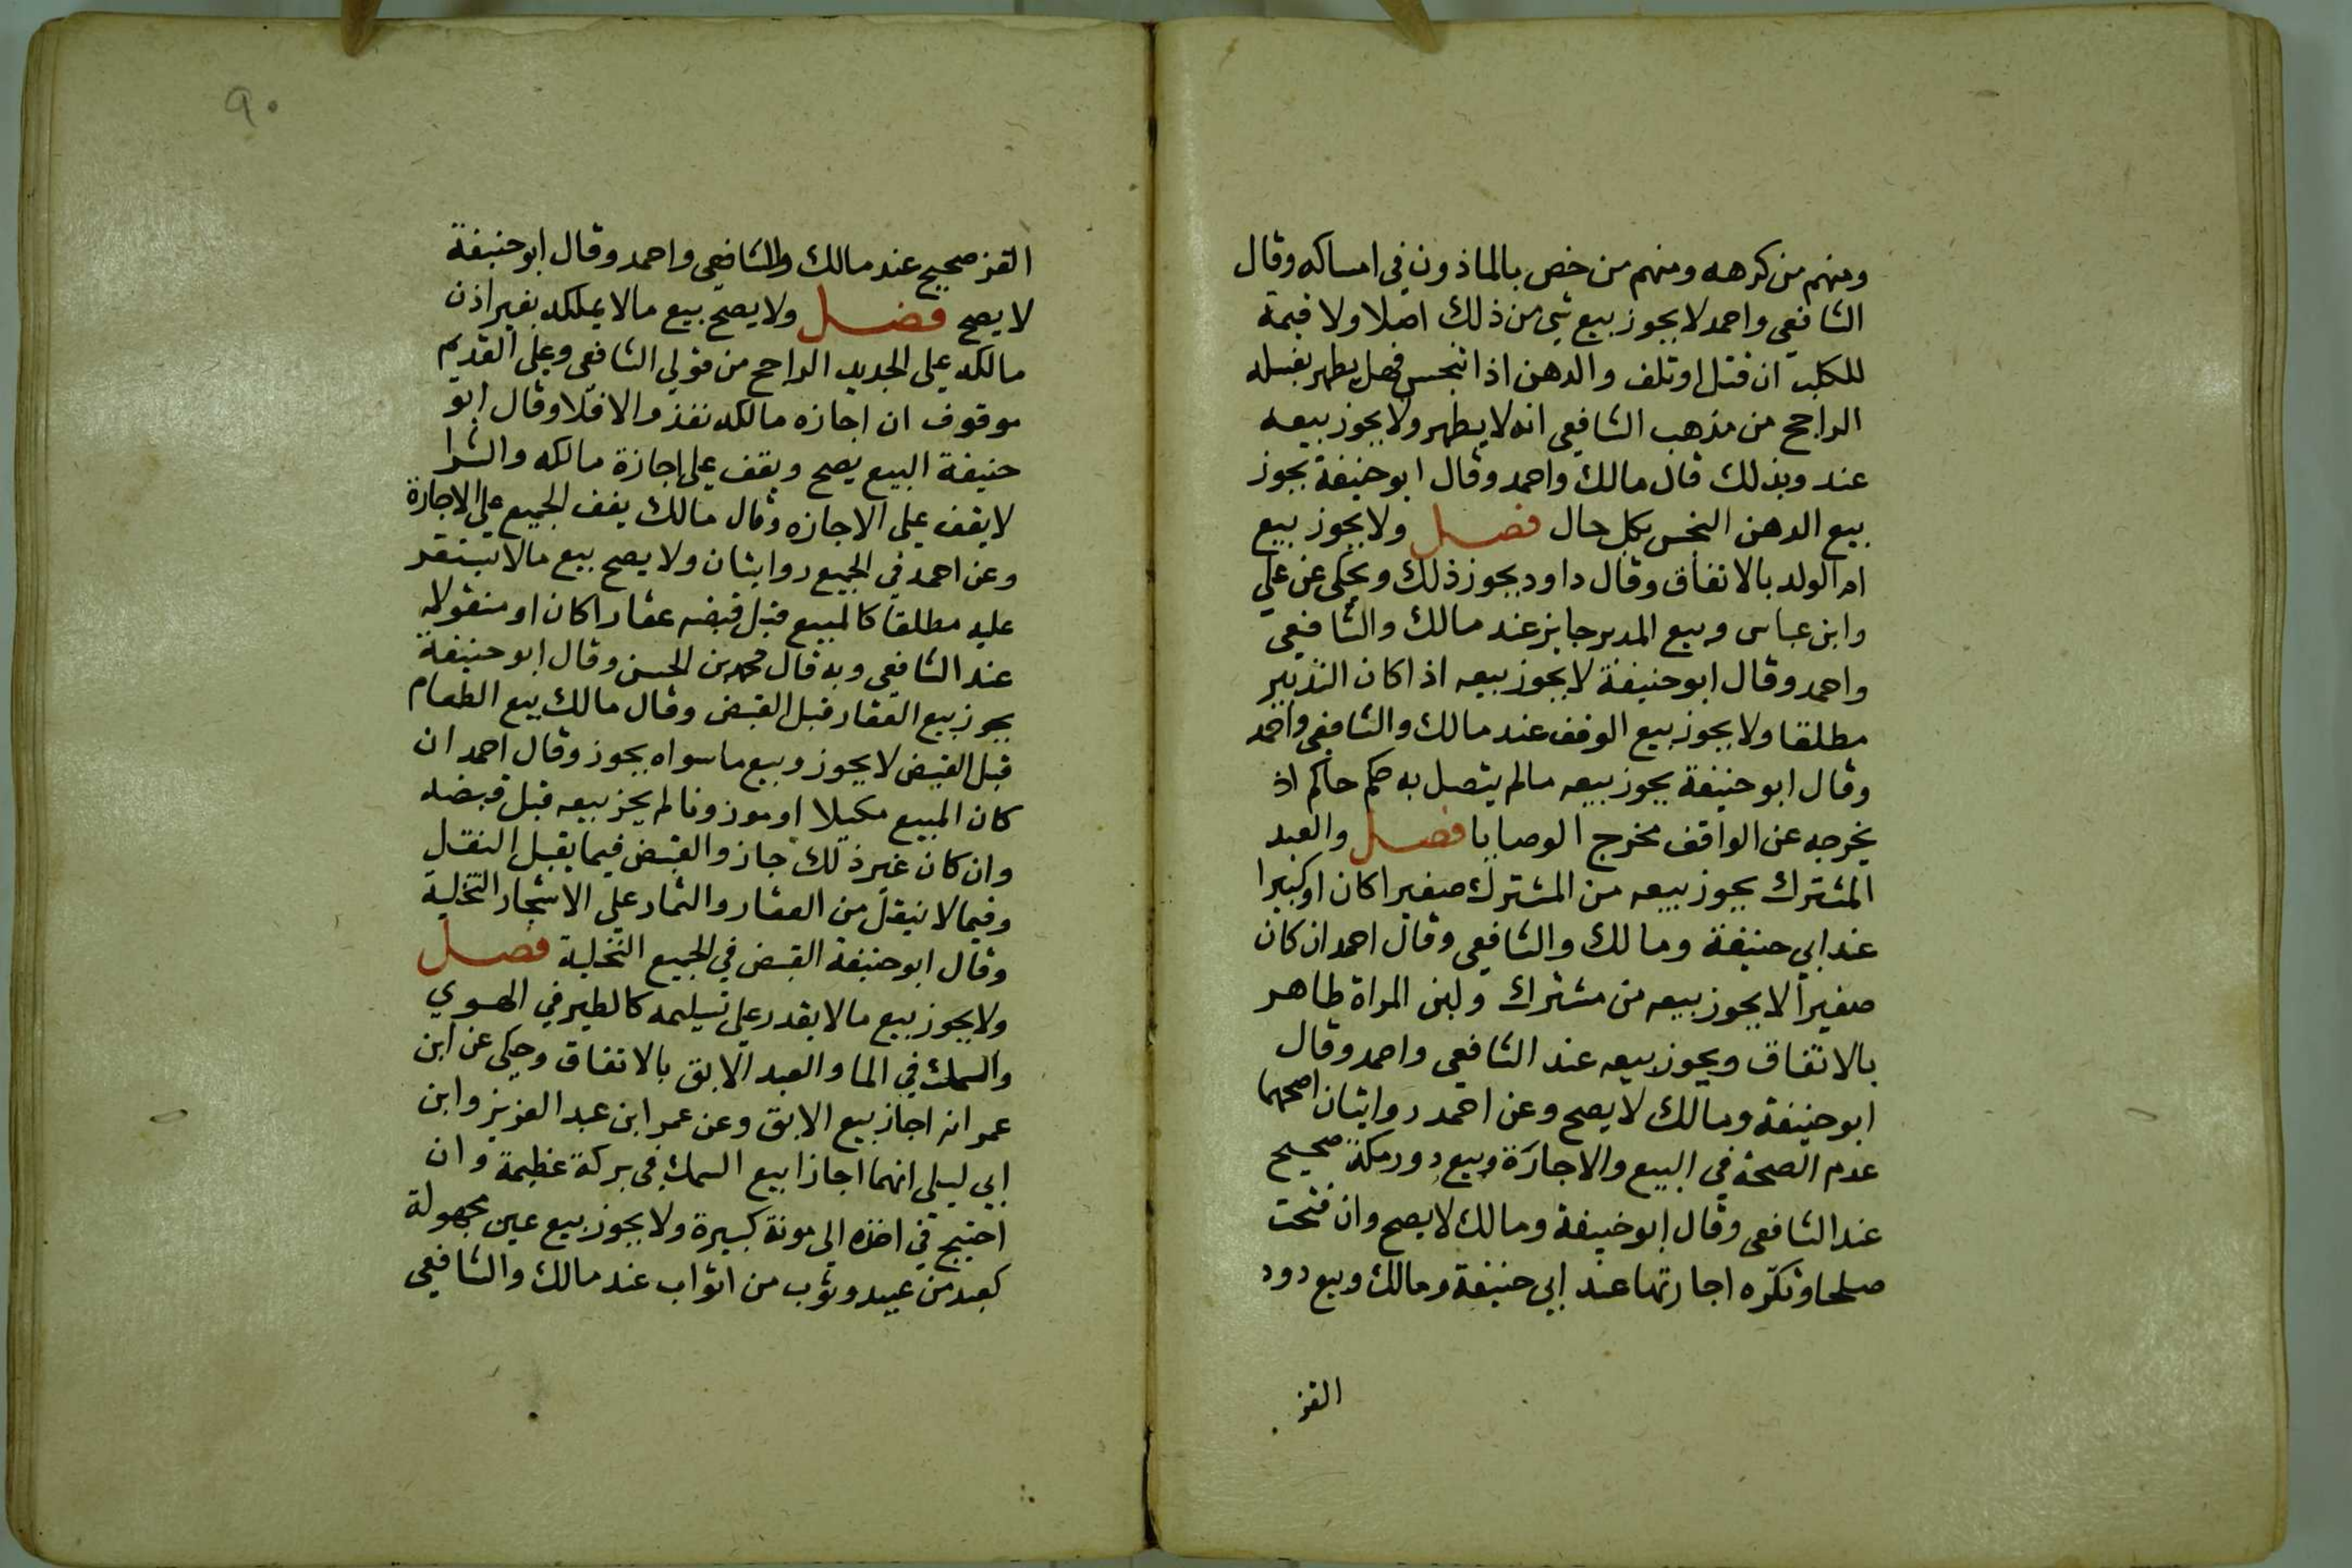 ومنهم من كرهه ومنهم من خص بالماذون في امساكه وقال
الشافعي واحمد لا يجوز بيع شي من ذلك اصلا ولا قيمة
للكلب ان قتل او تلف والدهن اذا تنجس فهل يطهر بغسله
الراجح من مذهب الشافعي انه لا يطهر ولا يجوز بيعه
عند وبذلك قال مالك واحمد وقال ابو حنيفة يجوز
بيع الدهن النجس بكل حال فصل ولا يجوز بيع
ام الولد بالاتفاق وقال داود يجوز ذلك ويحكى عن علي
وابن عباس وبيع المدبر جايز عند مالك والشافعي
واحمد وقال ابو حنيفة لا يجوز بيعه اذا كان التدبير
مطلقا ولا يجوز بيع الوقف عند مالك والشافعي واحمد
وقال ابو حنيفة يجوز بيعه مالم يتصل به حكم حاكم اذ
يخرجه عن الواقف مخرج الوصايا فصل والعبد
المشترك يجوز بيعه من المشترك صغيرا كان او كبيرا
عند ابي حنيفة ومالك والشافعي وقال احمد ان كان
صغيرا لا يجوز بيعه من مشترك ولبن المراة طاهر
بالاتفاق ويجوز بيعه عند الشافعي واحمد وقال
ابو حنيفة ومالك لا يصح وعن احمد روايتان اصحهما
عدم الصحة في البيع والاجارة وبيع دور مكة صحيح
عند الشافعي وقال ابو حنيفة ومالك لا يصح وان فتحت
صلحا وتكره اجارتها عند ابي حنيفة ومالك وبيع دود
القز
٩٠
القز صحيح عند مالك والشافعي واحمد وقال ابو حنيفة
لا يصح فصل ولا يصح بيع مالا يملكه بغير اذن
مالكه على الجديد الراجح من قولي الشافعي وعلى القديم
موقوف ان اجازه مالكه نفذ والا فلا وقال ابو
حنيفة البيع يصح ويقف على اجازة مالكه والشرا
لا يقف على الاجازه وقال مالك يقف الجميع على الاجازة
وعن احمد في الجميع روايتان ولا يصح بيع مالا يستقر
عليه مطلقا كالمبيع قبل قبضه عقارا كان او منقولا
عند الشافعي وبه قال محمد بن الحسن وقال ابو حنيفة
يجوز بيع العقار قبل القبض وقال مالك بيع الطعام
قبل القبض لا يجوز وبيع ماسواه يجوز وقال احمد ان
كان المبيع مكيلا او موزونا لم يجز بيعه قبل قبضه
وان كان غير ذلك جاز والقبض فيما يقبل النقل
وفيما لا ينقل من العقار والثمار على الاشجار التخلية
وقال ابو حنيفة القبض في الجميع التخلية فصل
ولا يجوز بيع مالا يقدر على تسليمه كالطير في الهوي
والسمك في الما والعبد الابق بالاتفاق وحكى عن ابن
عمر انه اجاز بيع الابق وعن عمر ابن عبد العزيز وابن
ابي ليلى انهما اجازا بيع السمك في بركة عظيمة وان
احتيج في اخذه الى مونة كبيرة ولا يجوز بيع عين مجهولة
كعبد من عبيد وثوب من اثواب عند مالك والشافعي